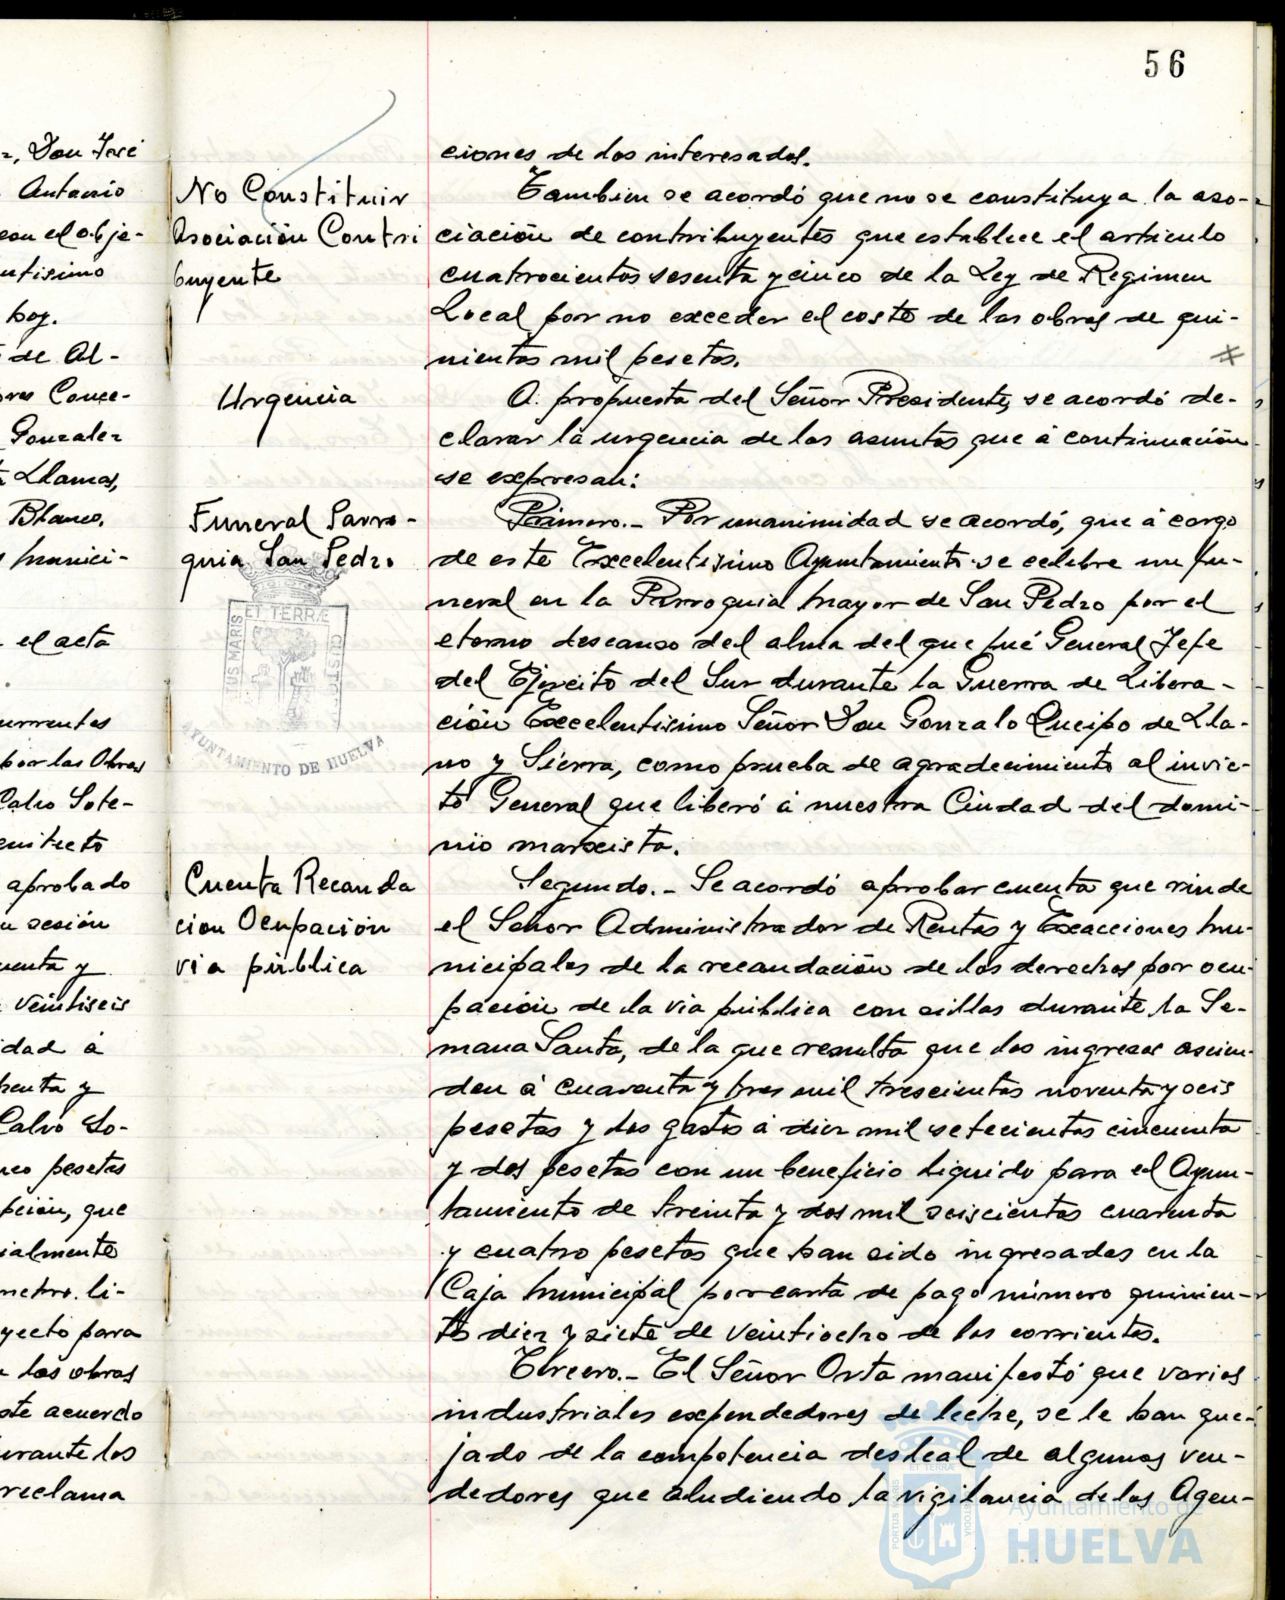 56
z, Don José
Antonio
con el obje-
ntisimo
hoy.
de Al-
ores Conce-
Gonzalez
Llamas,
Blanco,
s munici-
el acta
currentes
por las Obras
Calvo Sote-
quitecto
aprobado
n sesión
uenta y
veintiseis
idad á
henta y
Calvo So-
nco pesetas
pción, que
ialmente
metro li-
yecto para
las obras
ste acuerdo
urante los
reclama
ciones de los interesados.
No Constituir
Asociación Contri
buyente
Tambien se acordó que no se constituya la aso-
ciación de contribuyentes que establece el articulo
cuatrocientos sesenta y cinco de la Ley de Regimen
Local por no exceder el costo de las obras de qui-
nientas mil pesetas.
Urgencia
A propuesta del Señor Presidente, se acordó de-
clarar la urgencia de los asuntos que á continuación
se expresan:
Funeral Parro-
quia San Pedro
Primero.- Por unanimidad se acordó, que á cargo
de este Excelentisimo Ayuntamiento se celebre un fu-
neral en la Parroquia mayor de San Pedro por el
eterno descanso del alma del que fué General Jefe
del Ejército del Sur durante la Guerra de Libera-
ción Excelentisimo Señor Don Gonzalo Queipo de Lla-
no y Sierra, como prueba de agradecimiento al invic-
to General que liberó á nuestra Ciudad del domi-
nio marxista.
Cuenta Recauda
cion Ocupación
via pública
Segundo.- Se acordó aprobar cuenta que rinde
el Señor Administrador de Rentas y Exacciones mu-
nicipales de la recaudación de los derechos por ocu-
pación de la via pública con sillas durante la Se-
mana Santa, de la que resulta que los ingresos ascien-
den á cuarenta y tres mil trescientas noventa y seis
pesetas y los gastos á diez mil setecientas cincuenta
y dos pesetas con un beneficio liquido para el Ayun-
tamiento de treinta y dos mil seiscientas cuarenta
y cuatro pesetas que han sido ingresadas en la
Caja municipal por carta de pago número quinien-
to diez y siete de veintiocho de los corrientes.
Tercero.- El Señor Orta manifestó que varios
industriales expendedores de leche, se le han que-
jado de la competencia desleal de algunos ven-
dedores que eludiendo la vigilancia de los Agen-
PORTUS MARIS ET TERRÆ CUSTODIA
AYUNTAMIENTO DE HUELVA
Ayuntamiento de
HUELVA